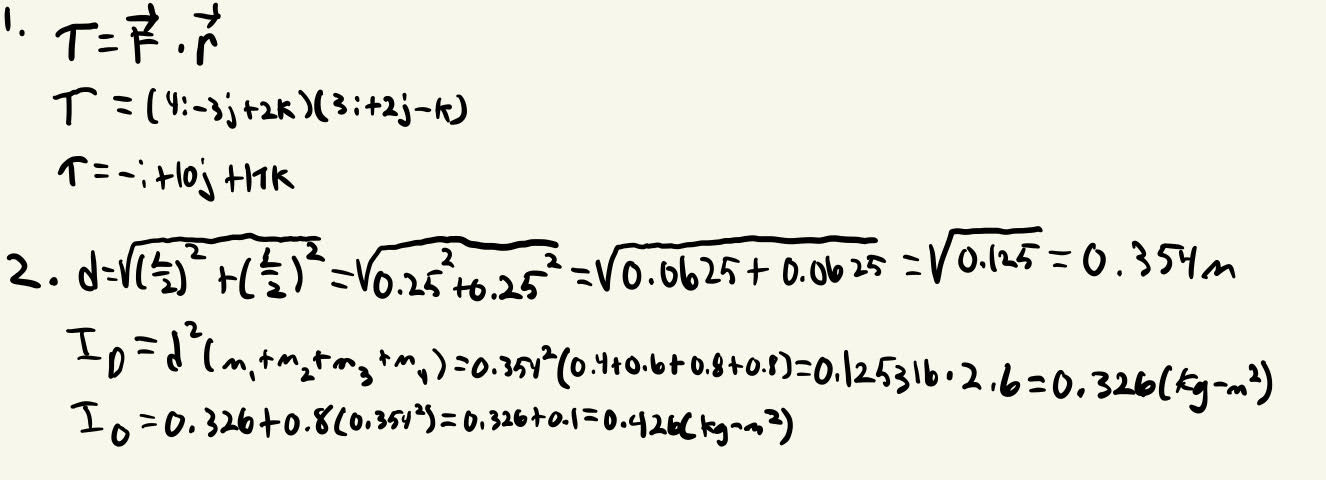 1. T = F⃗ · r⃗
T = (4i-3j+2k)(3i+2j-k)
T = -i+10j+17k
2. d=√((L/2)²+(L/2)²)=√(0.25²+0.25²)=√(0.0625+0.0625)=√0.125=0.354m
I_D=d²(m₁+m₂+m₃+m₄)=0.354²(0.4+0.6+0.8+0.8)=0.125316·2.6=0.326(kg-m²)
I_O=0.326+0.8(0.354²)=0.326+0.1=0.426(kg-m²)